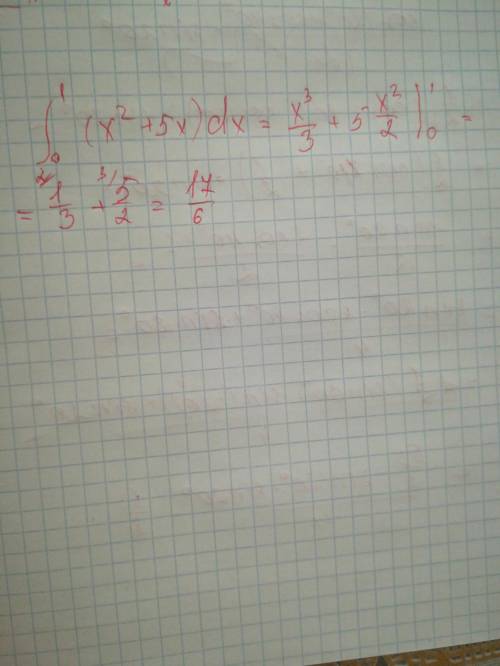 ∫₀¹ (x² + 5x) dx = x³/3 + 5 x²/2 |₀¹ =
= ²⁄1/3 + ³⁄5/2 = 17/6